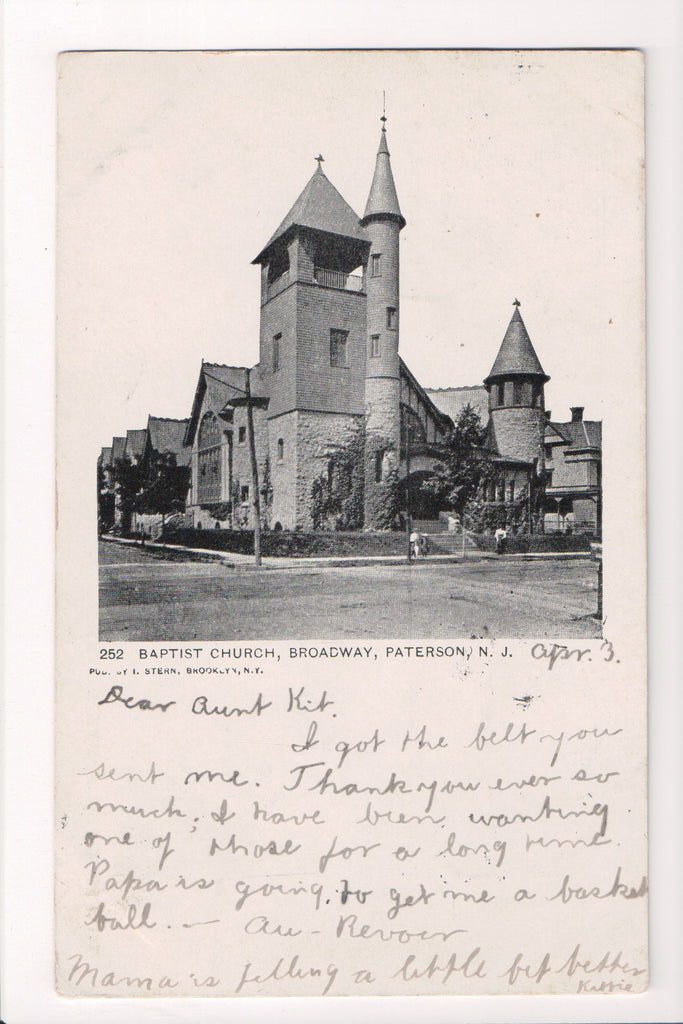 252 BAPTIST CHURCH, BROADWAY, PATERSON, N. J. Apr. 3.
PUB. BY I. STERN, BROOKLYN, N.Y.
Dear Aunt Kit.
I got the belt you
sent me. Thank you ever so
much. I have been wanting
one of those for a long time.
Papa is going to get me a basket
ball. — Au-Revoir
Mama is felling a little bit better
Kattie